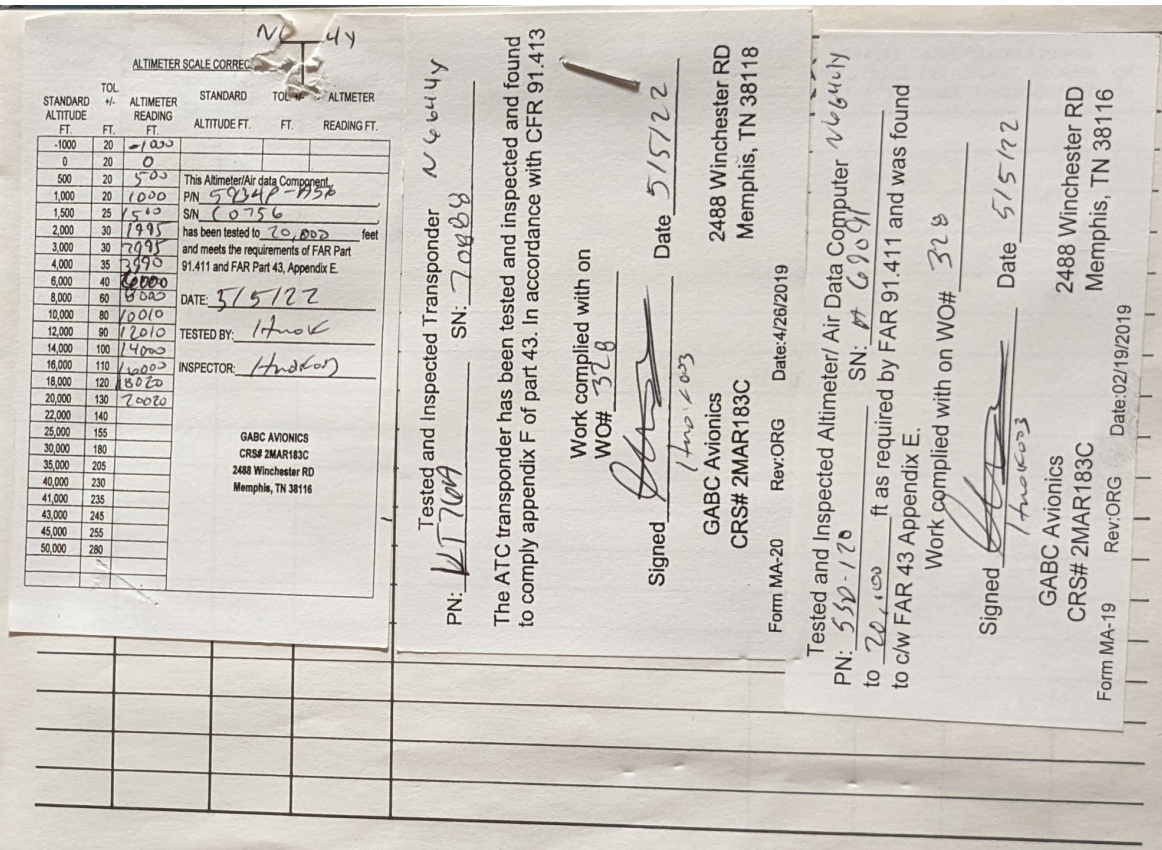 N6 4Y
ALTIMETER SCALE CORREC
STANDARD ALTITUDE FT. TOL +/- FT. ALTIMETER READING FT. STANDARD ALTITUDE FT. TOL +/- FT. ALTMETER READING FT.
-1000 20 -1000
0 20 0
500 20 500
1,000 20 1000
1,500 25 1500
2,000 30 1995
3,000 30 2995
4,000 35 3990
6,000 40 6000
8,000 60 8000
10,000 80 10010
12,000 90 12010
14,000 100 14000
16,000 110 16000
18,000 120 18020
20,000 130 20020
22,000 140
25,000 155
30,000 180
35,000 205
40,000 230
41,000 235
43,000 245
45,000 255
50,000 280
This Altimeter/Air data Component,
P/N 5934P-A56
S/N C0756
has been tested to 20,000 feet
and meets the requirements of FAR Part
91.411 and FAR Part 43, Appendix E.
DATE: 5/5/22
TESTED BY:
INSPECTOR:
GABC AVIONICS
CRS# 2MAR183C
2488 Winchester RD
Memphis, TN 38116
Tested and Inspected Transponder N6644Y
PN: KT76A SN: 70888
The ATC transponder has been tested and inspected and found
to comply appendix F of part 43. In accordance with CFR 91.413
Work complied with on
WO# 328
Signed Date 5/5/22
GABC Avionics 2488 Winchester RD
CRS# 2MAR183C Memphis, TN 38118
Form MA-20 Rev:ORG Date:4/26/2019
Tested and Inspected Altimeter/ Air Data Computer N6644Y
PN: SSD-120 SN:
to ft as required by FAR 91.411 and was found
to c/w FAR 43 Appendix E.
Work complied with on WO# 328
Signed Date 5/5/22
GABC Avionics 2488 Winchester RD
CRS# 2MAR183C Memphis, TN 38116
Form MA-19 Rev:ORG Date:02/19/2019